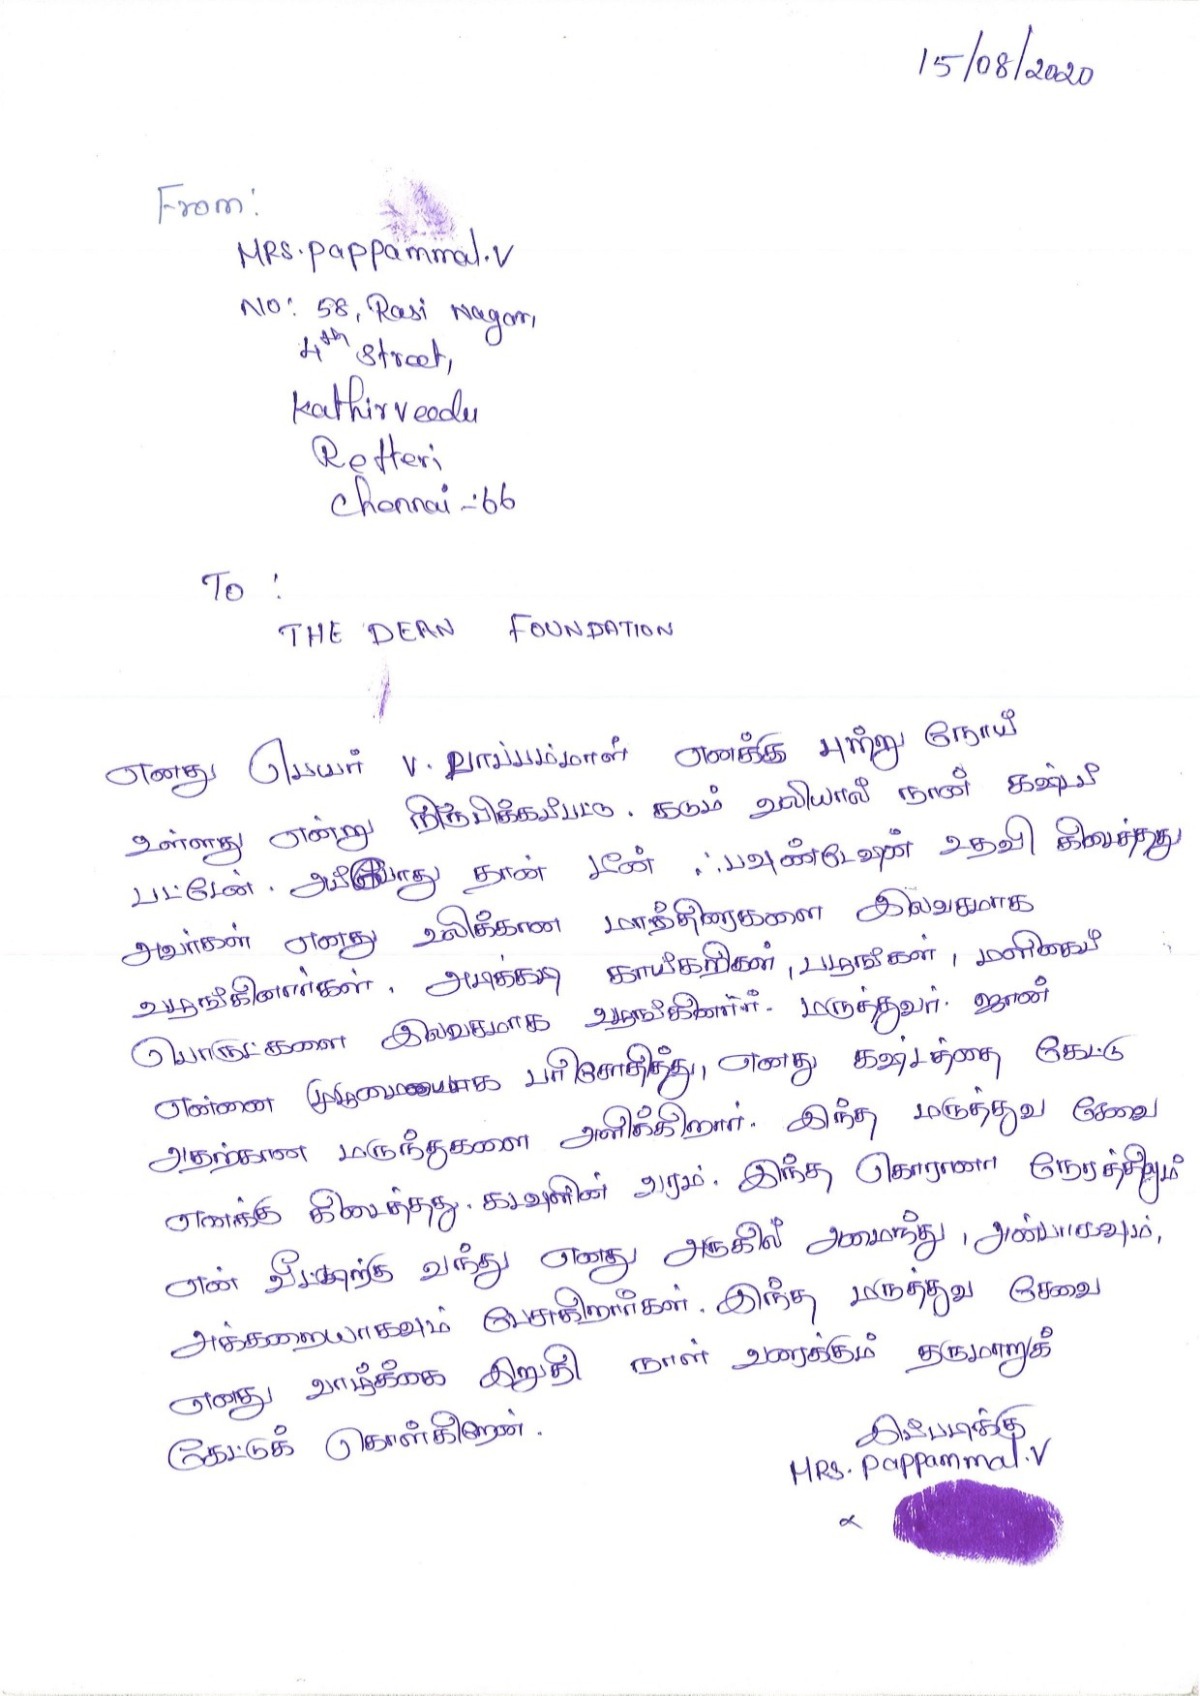 15/08/2020
From:
MRS. Pappammal.V
NO: 58, Rasi Nagar,
4th Street,
Kathirveedu
Retteri
Chennai-:66
To :
THE DEAN FOUNDATION
எனது பெயர் V. பாப்பம்மாள் எனக்கு புற்று நோய்
உள்ளது என்று நிரூபிக்கப்பட்டு. கடும் வலியால் நான் கஷ்டப்
பட்டேன். அப்போது தான் டீன் ஃபவுண்டேஷன் உதவி கிடைத்தது
அவர்கள் எனது வலிக்கான மாத்திரைகளை இலவசமாக
வழங்கினார்கள். அடிக்கடி காய்கறிகள், பழங்கள், மளிகைப்
பொருட்களை இலவசமாக வழங்கினார்கள். மருத்துவர். ஜான்
என்னை முழுமையாக பரிசோதித்து, எனது கஷ்டத்தை கேட்டு
அதற்கான மருந்துகளை அளிக்கிறார். இந்த மருத்துவ சேவை
எனக்கு கிடைத்தது. கடவுளின் வரம். இந்த கொரானா நேரத்திலும்
என் வீட்டிற்கு வந்து எனது அருகில் அமைந்து, அன்பாகவும்,
அக்கறையாகவும் பேசுகிறார்கள். இந்த மருத்துவ சேவை
எனது வாழ்க்கை இறுதி நாள் வரைக்கும் தருமாறுக்
கேட்டுக் கொள்கிறேன்.
இப்படிக்கு
MRS. Pappammal.V